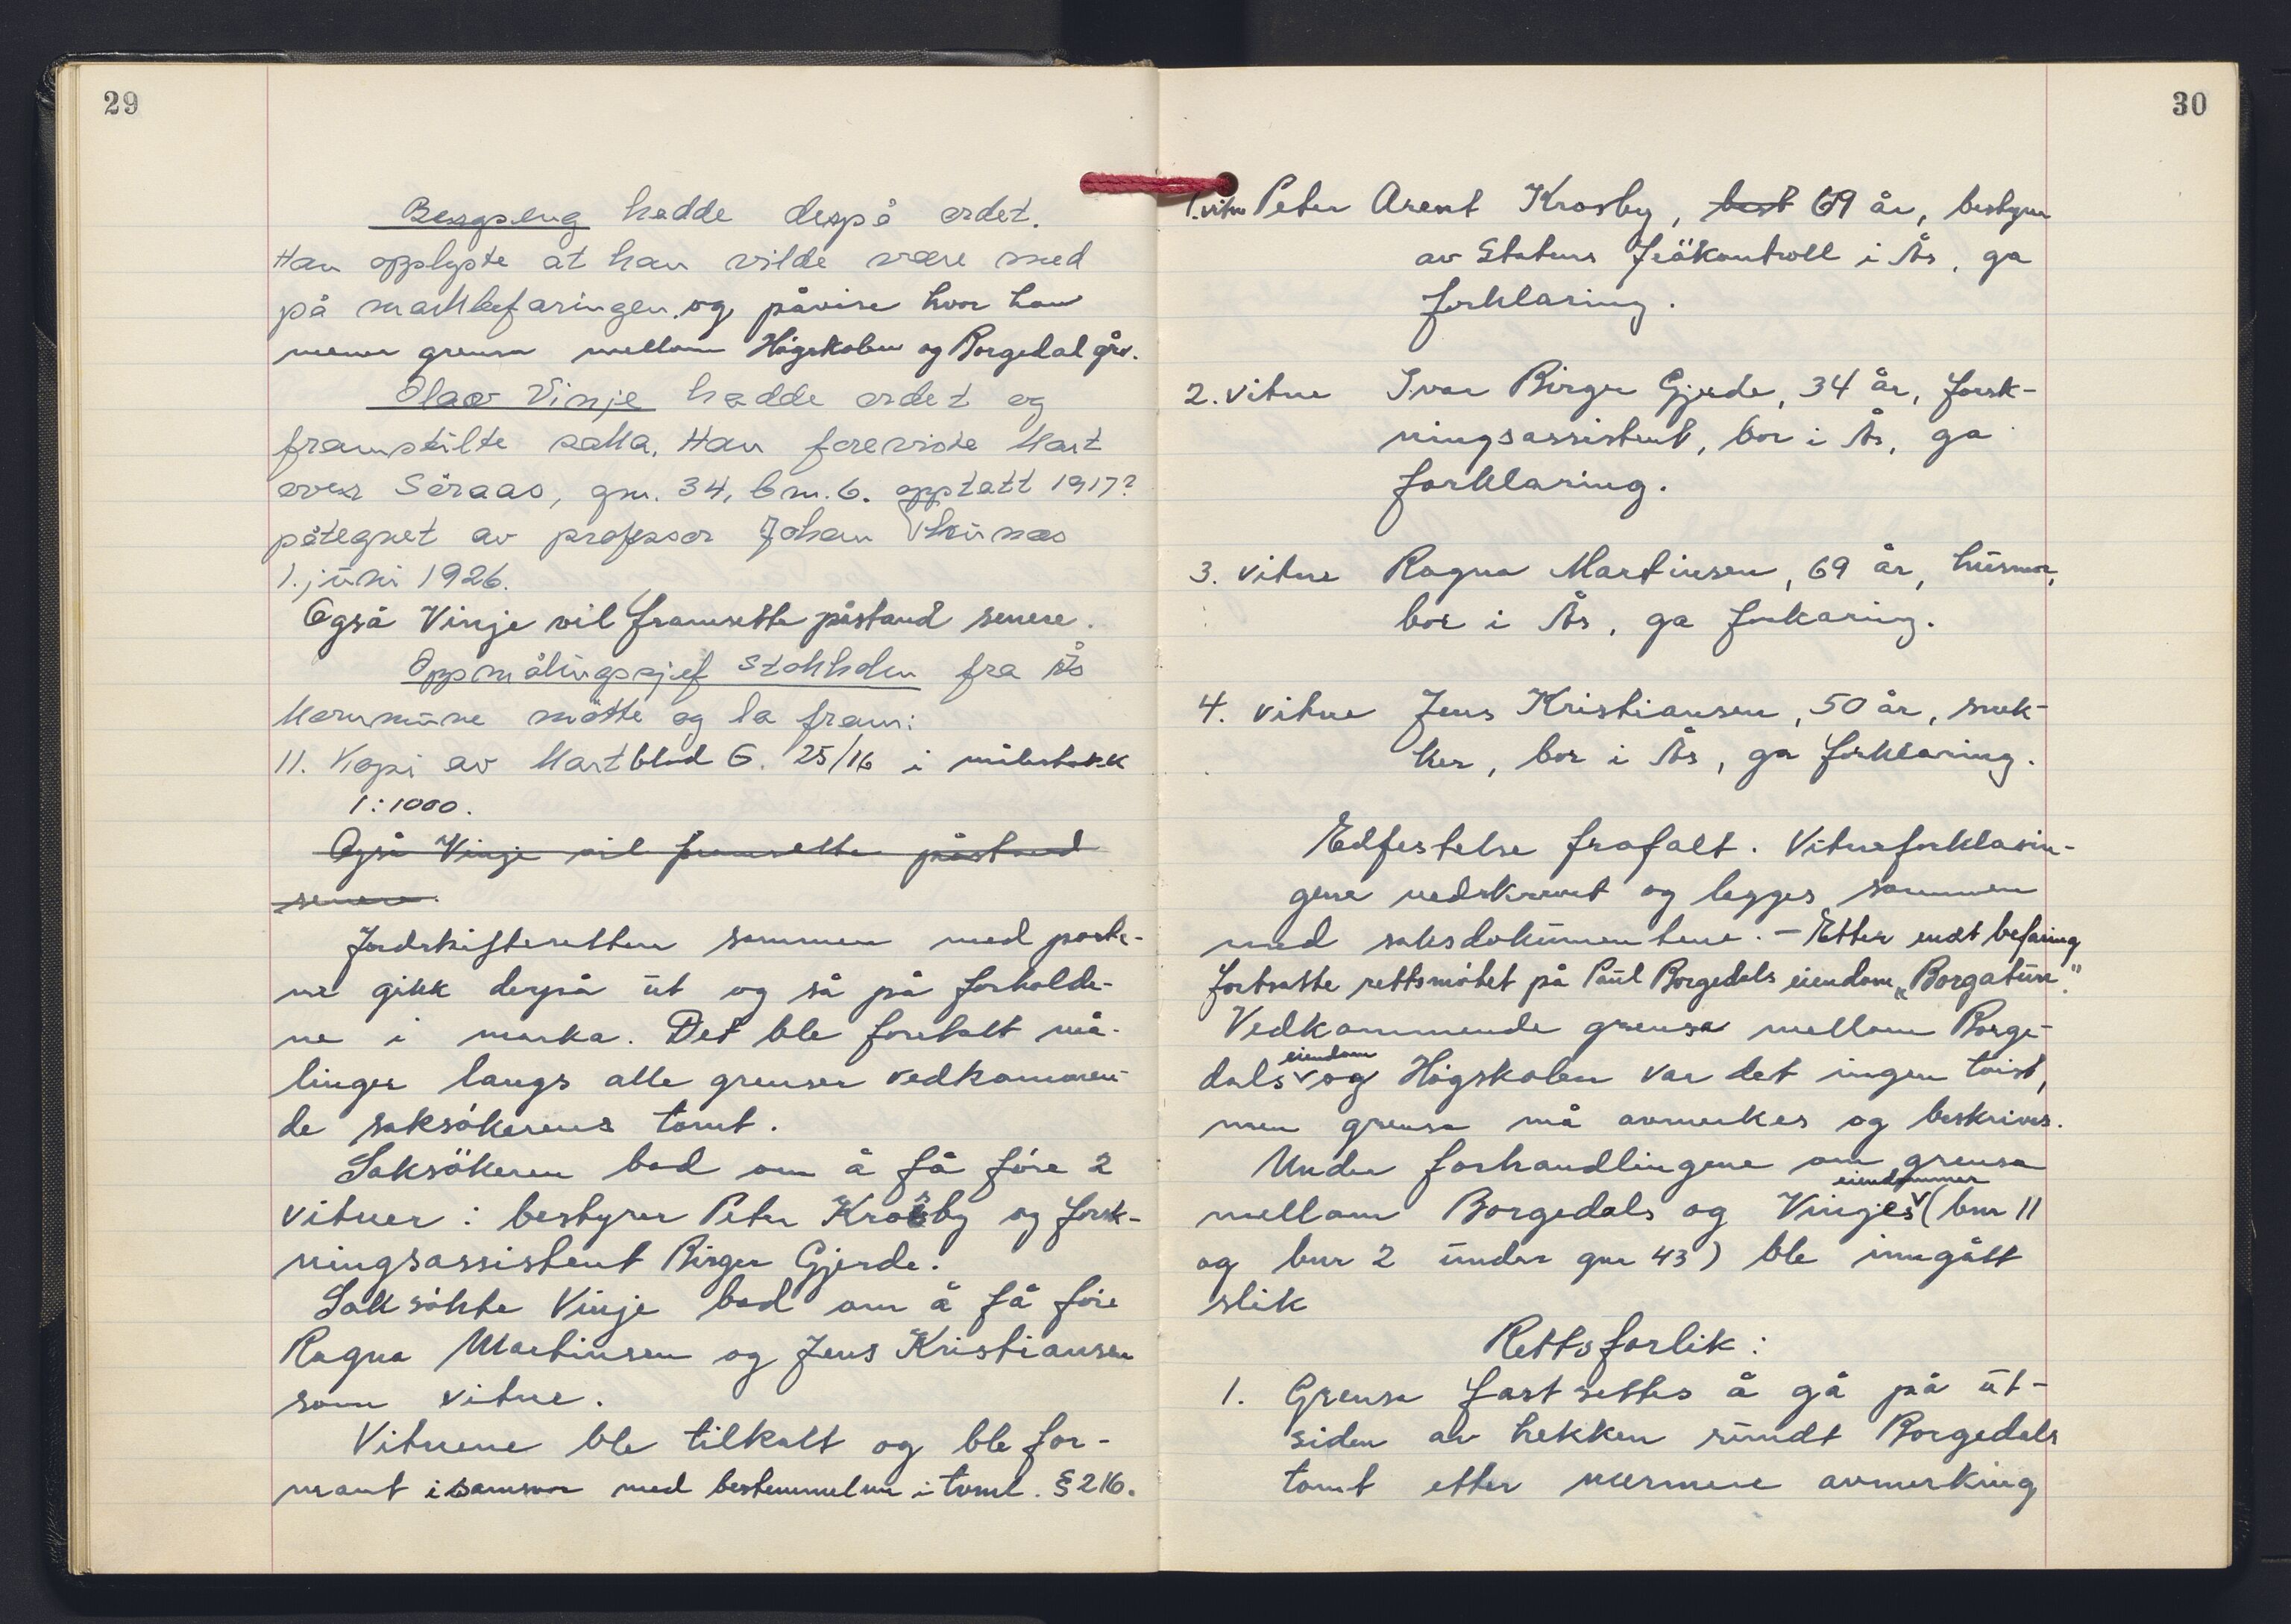 29
Bergseng hadde derpå ordet.
Han opplyste at han vilde være med
på markbefaringen og påvise hvor han
mener grensa mellom Högskolen og Borgedal går.
Olav Vinje hadde ordet og
framstilte saka. Han foreviste kart
over Söraas, gnr. 34, bnr. 6. opptatt 1917?
påtegnet av professor Johan
1. juni 1926.
Også Vinje vil framsette påstand senere.
Oppmålingssjef Stokholm fra Ås
kommune møtte og la fram:
11. Kopi av kartblad G. 25/16 i målestokk
1:1000.
Også Vinje vil framsette påstand
senere.
Jordskifteretten sammen med parte-
ne gikk derpå ut og så på forholde-
ne i marka. Det ble foretatt må-
linger langs alle grenser vedkommen-
de saksökerens tomt.
Saksökeren bad om å få före 2
vitner: bestyrer Peter Krosby og forsk-
ningsassistent Birger Gjerde.
Saksökte Vinje bad om å få före
Ragna Martinsen og Jens Kristiansen
som vitne.
Vitnene ble tilkalt og ble for-
mant i samsvar med bestemmelsene i tvml. § 216.
30
1. vitne Peter Arent Krosby, best 69 år, bestyrer
av Statens Frökontroll i Ås, ga
forklaring.
2. vitne Ivar Birger Gjerde, 34 år, forsk-
ningsassistent, bor i Ås, ga
forklaring.
3. vitne Ragna Martinsen, 69 år, husmor,
bor i Ås, ga forkaring.
4. vitne Jens Kristiansen, 50 år, snek-
ker, bor i Ås, ga forklaring.
Edfestelse frafalt. Vitneforklarin-
gene nedskrevet og legges sammen
med saksdokumentene. - Etter endt befaring
fortsatte rettsmötet på Paul Borgedals eiendom „Borgatun".
Vedkommende grensa mellom Borge-
dals eiendom og Högskolen var det ingen tvist,
men grensa må avmerkes og beskrives.
Under forhandlingene om grensa
mellom Borgedals og Vinjes eiendommer (bnr 11
og bnr 2 under gnr 43) ble inngått
slik
Rettsforlik:
1. Grensa fastsettes å gå på ut-
siden av hekken rundt Borgedals
tomt etter nærmere avmerking